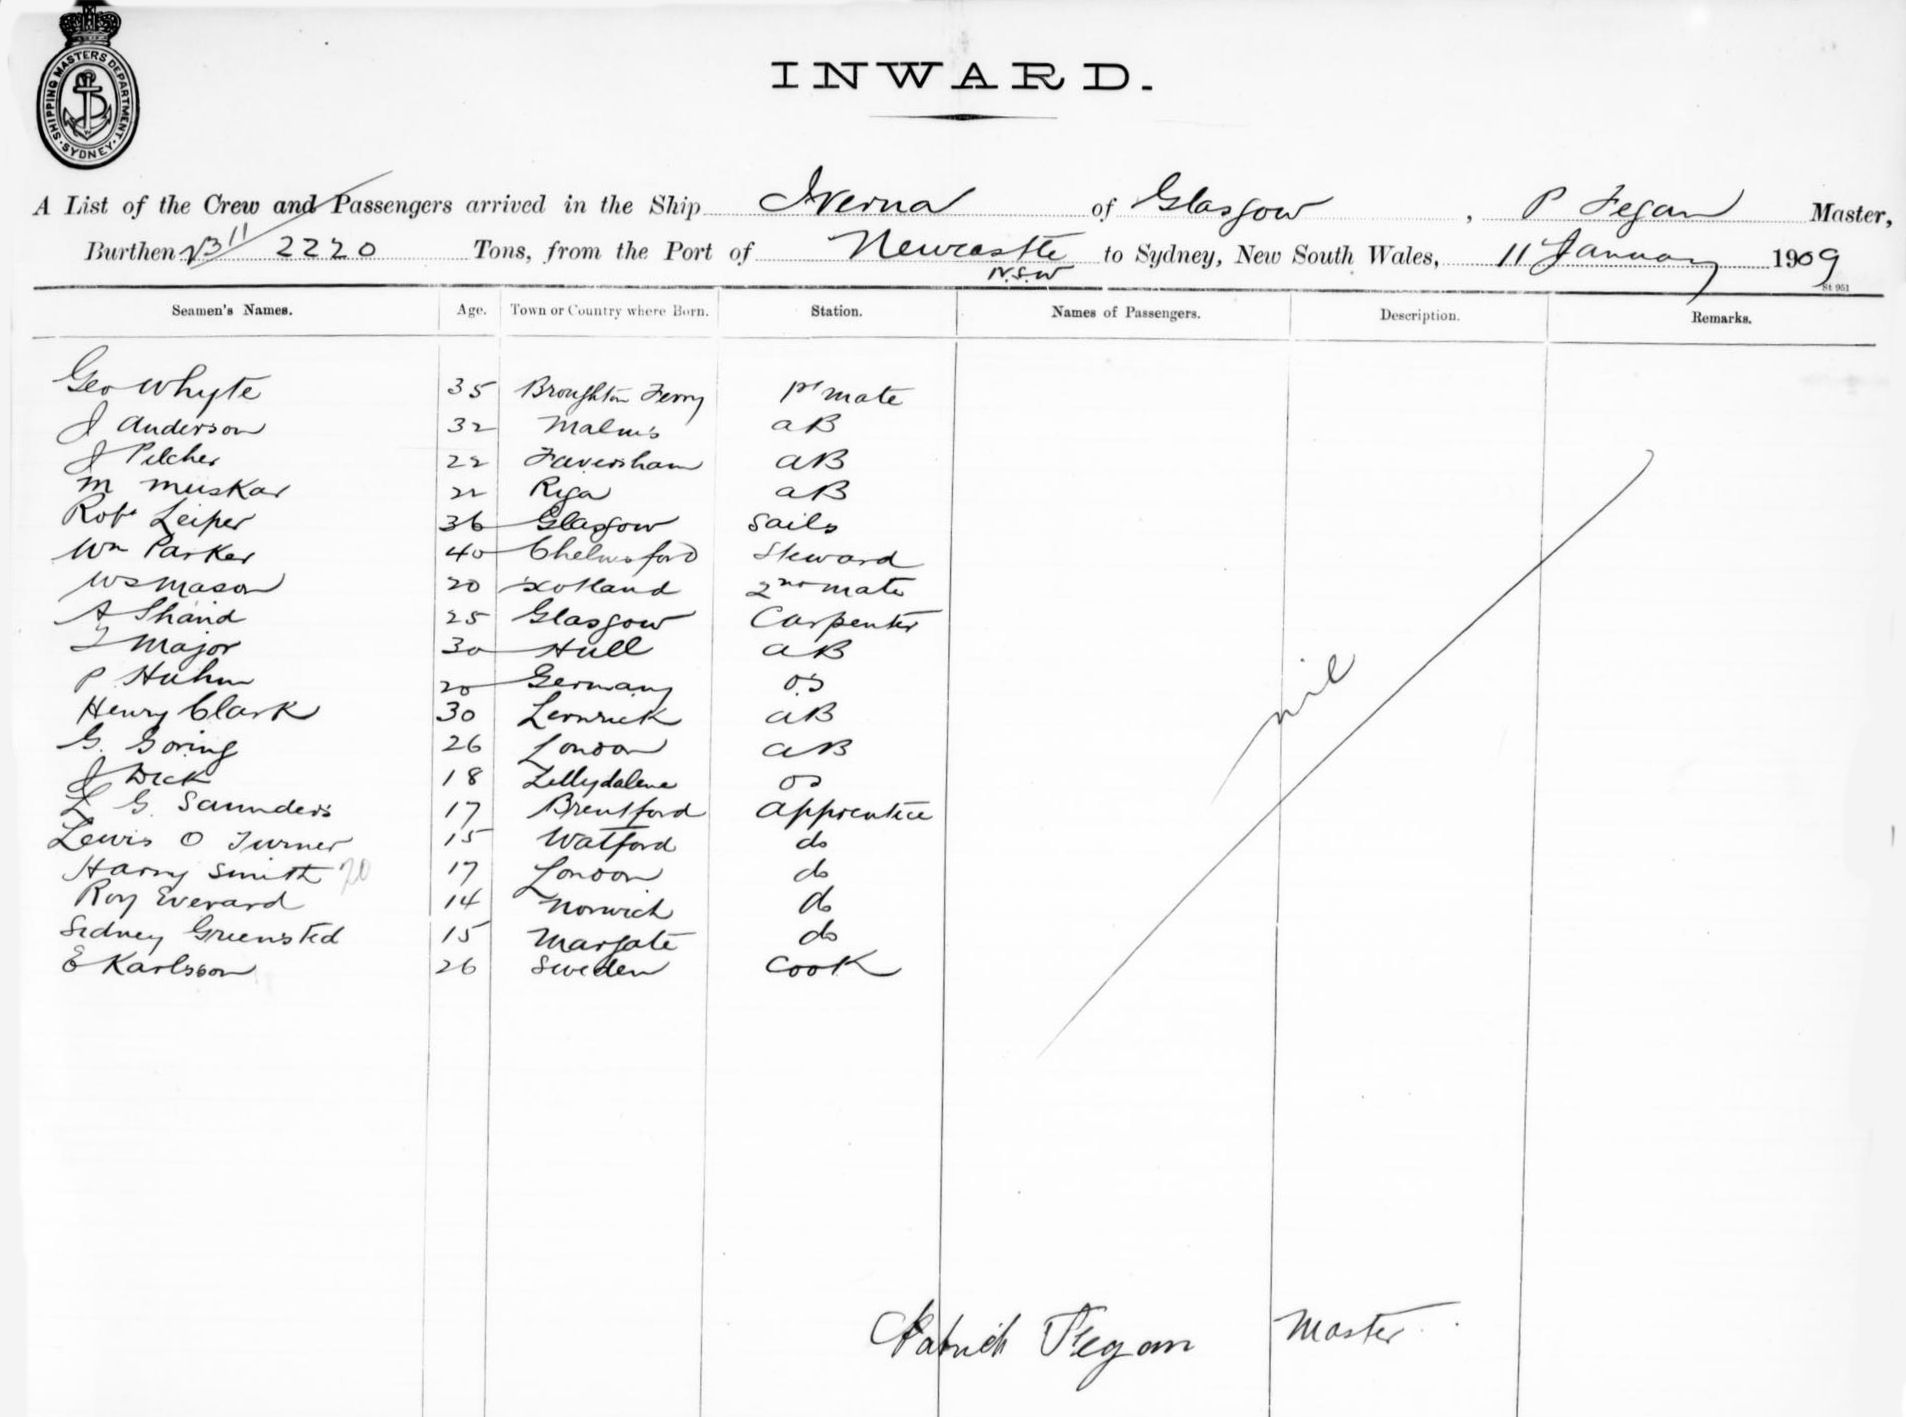 SHIPPING MASTERS DEPARTMENT
SYDNEY
INWARD.
A List of the Crew and Passengers arrived in the Ship Iverna of Glasgow, P Fegan Master,
Burthen 2220 Tons, from the Port of Newcastle to Sydney, New South Wales, 11 January 1909
N.S.W
St 951
Seamen's Names. Age. Town or Country where Born. Station. Names of Passengers. Description. Remarks.
Geo Whyte 35 Broughton Ferry 1st mate
J Anderson 32 aB
J Pilcher 22 Faversham aB
M Muskar 22 Riga aB
Robt Leiper 36 Glasgow Sails
Wm Parker 40 Chelmsford Steward
WS Mason 20 Scotland 2nd mate
A Shand 25 Glasgow Carpenter
T Major 30 Hull aB
P Huhn 20 Germany os
Henry Clark 30 Lerwick aB
G. Goring 26 London aB
J Dick 18 os
L G Saunders 17 Brentford apprentice
Lewis O Turner 15 Watford do
Harry Smith 20 17 London do
Roy Everard 14 Norwich do
Sidney Greensted 15 Margate do
E Karlsson 26 Sweden Cook
nil
Patrick Fegan Master